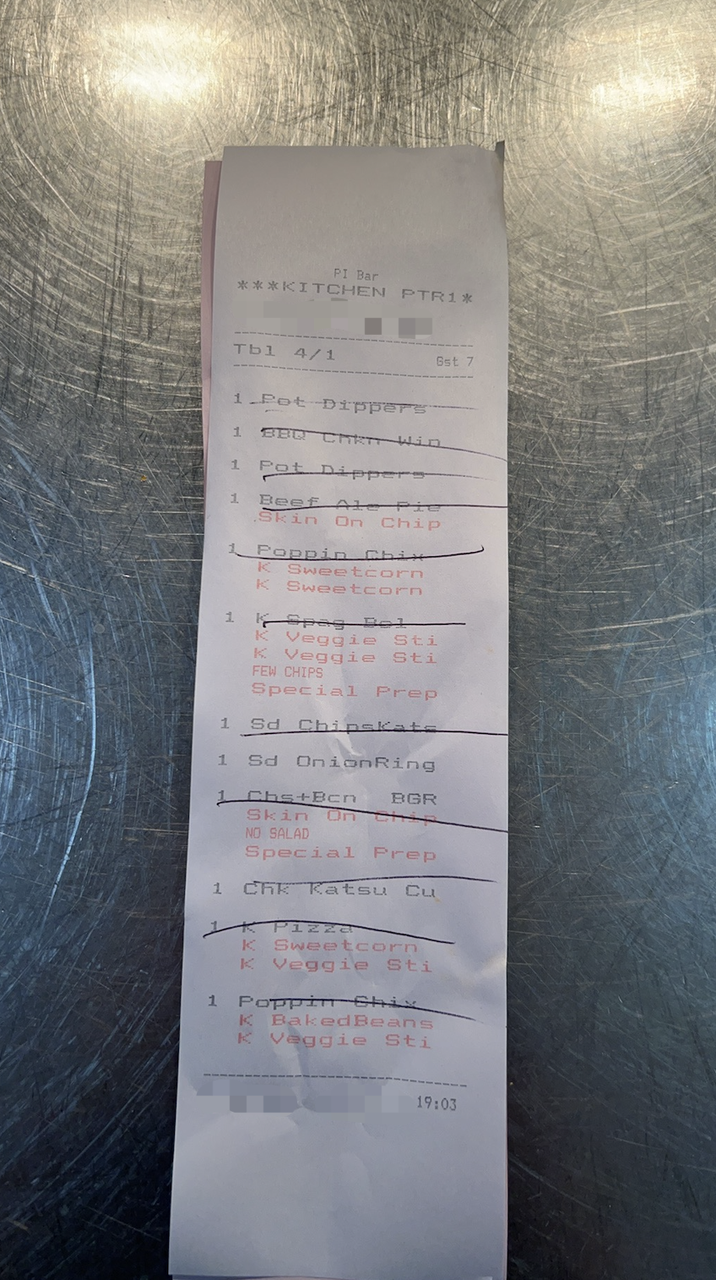 PI Bar
***KITCHEN PTR1*
Tbl 4/1 Gst 7
1 Pot Dippers
1 BBQ Chkn Win
1 Pot Dippers
1 Beef Ale Pie
Skin On Chip
1 Poppin Chix
K Sweetcorn
K Sweetcorn
1 K Spag Bol
K Veggie Sti
K Veggie Sti
FEW CHIPS
Special Prep
1 Sd ChipsKats
1 Sd OnionRing
1 Chs+Bcn BGR
Skin On Chip
NO SALAD
Special Prep
1 Chk Katsu Cu
1 K Pizza
K Sweetcorn
K Veggie Sti
1 Poppin Chix
K BakedBeans
K Veggie Sti
19:03